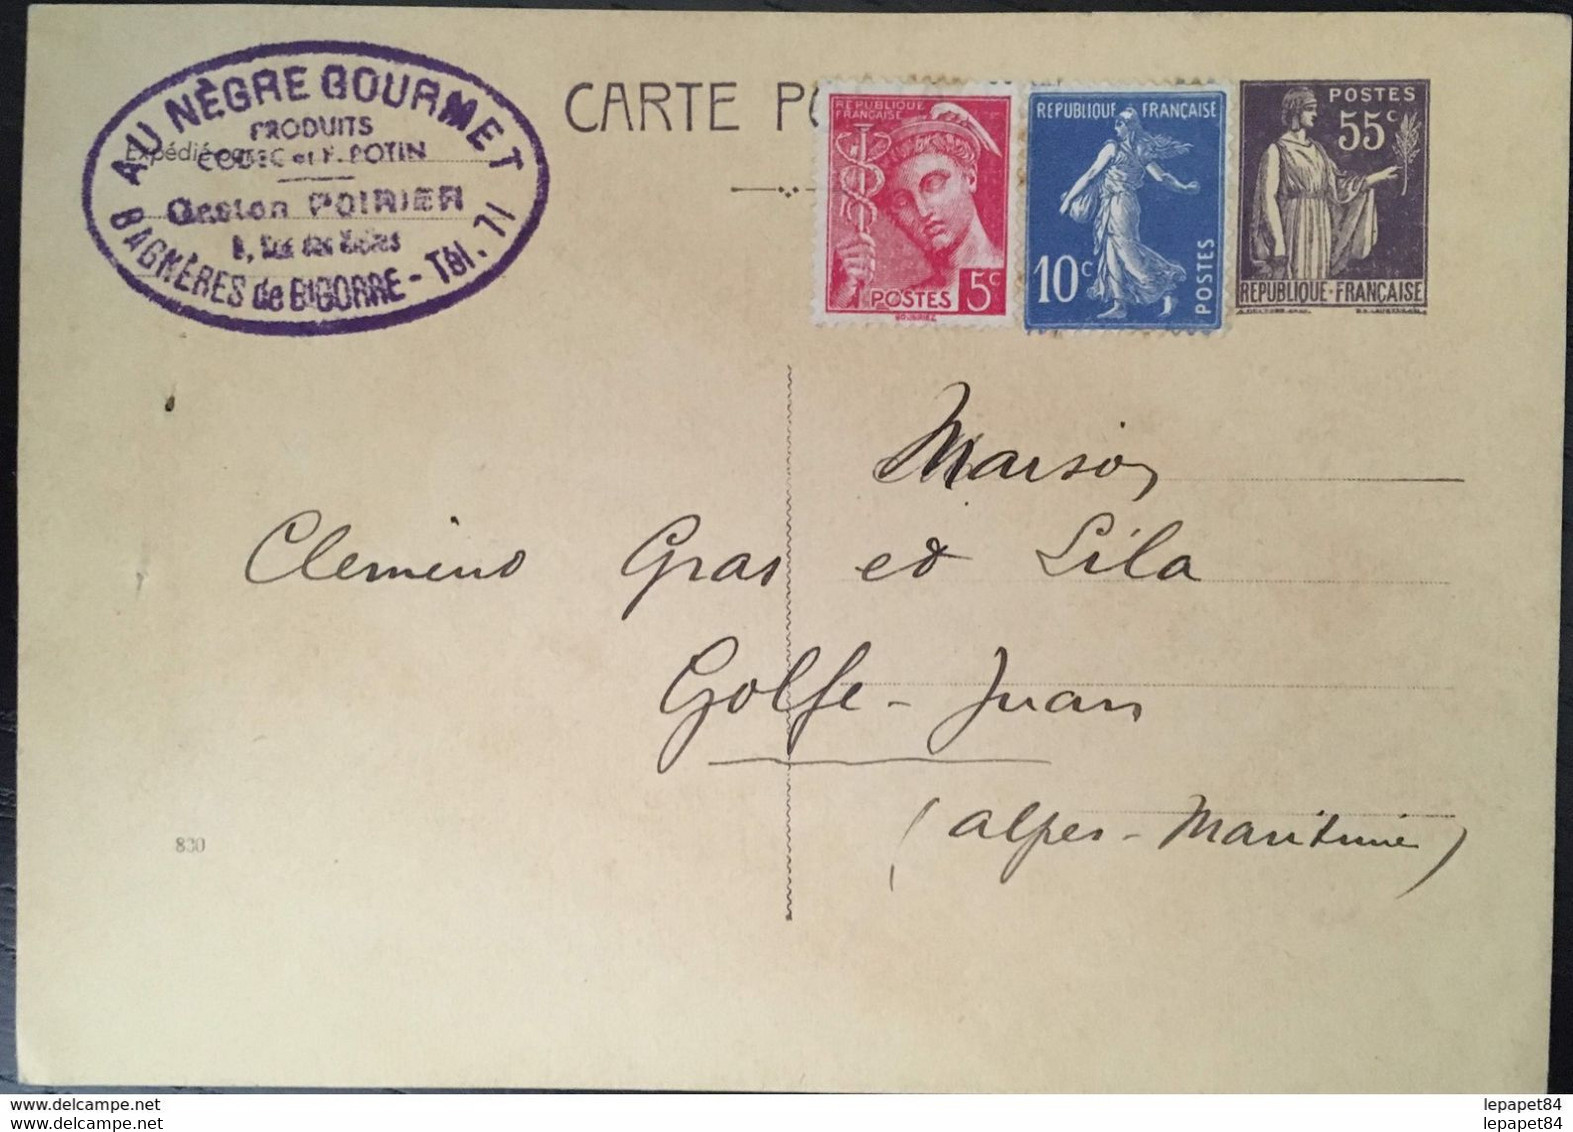 AU NÈGRE GOURMET
PRODUITS
Expédié
CODEC et F. POTIN
Gaston POIRIER
BAGNÈRES de BIGORRE - Tél. 71
CARTE PO
REPUBLIQUE
FRANCAISE
POSTES 5c
REPUBLIQUE FRANÇAISE
10c
POSTES
POSTES
55c
REPUBLIQUE·FRANÇAISE
Maison
Clement Gras et Lila
Golfe-Juan
(Alpes-Maritimes)
830
www.delcampe.net
lepapet84
www.delcampe.net
lepapet84